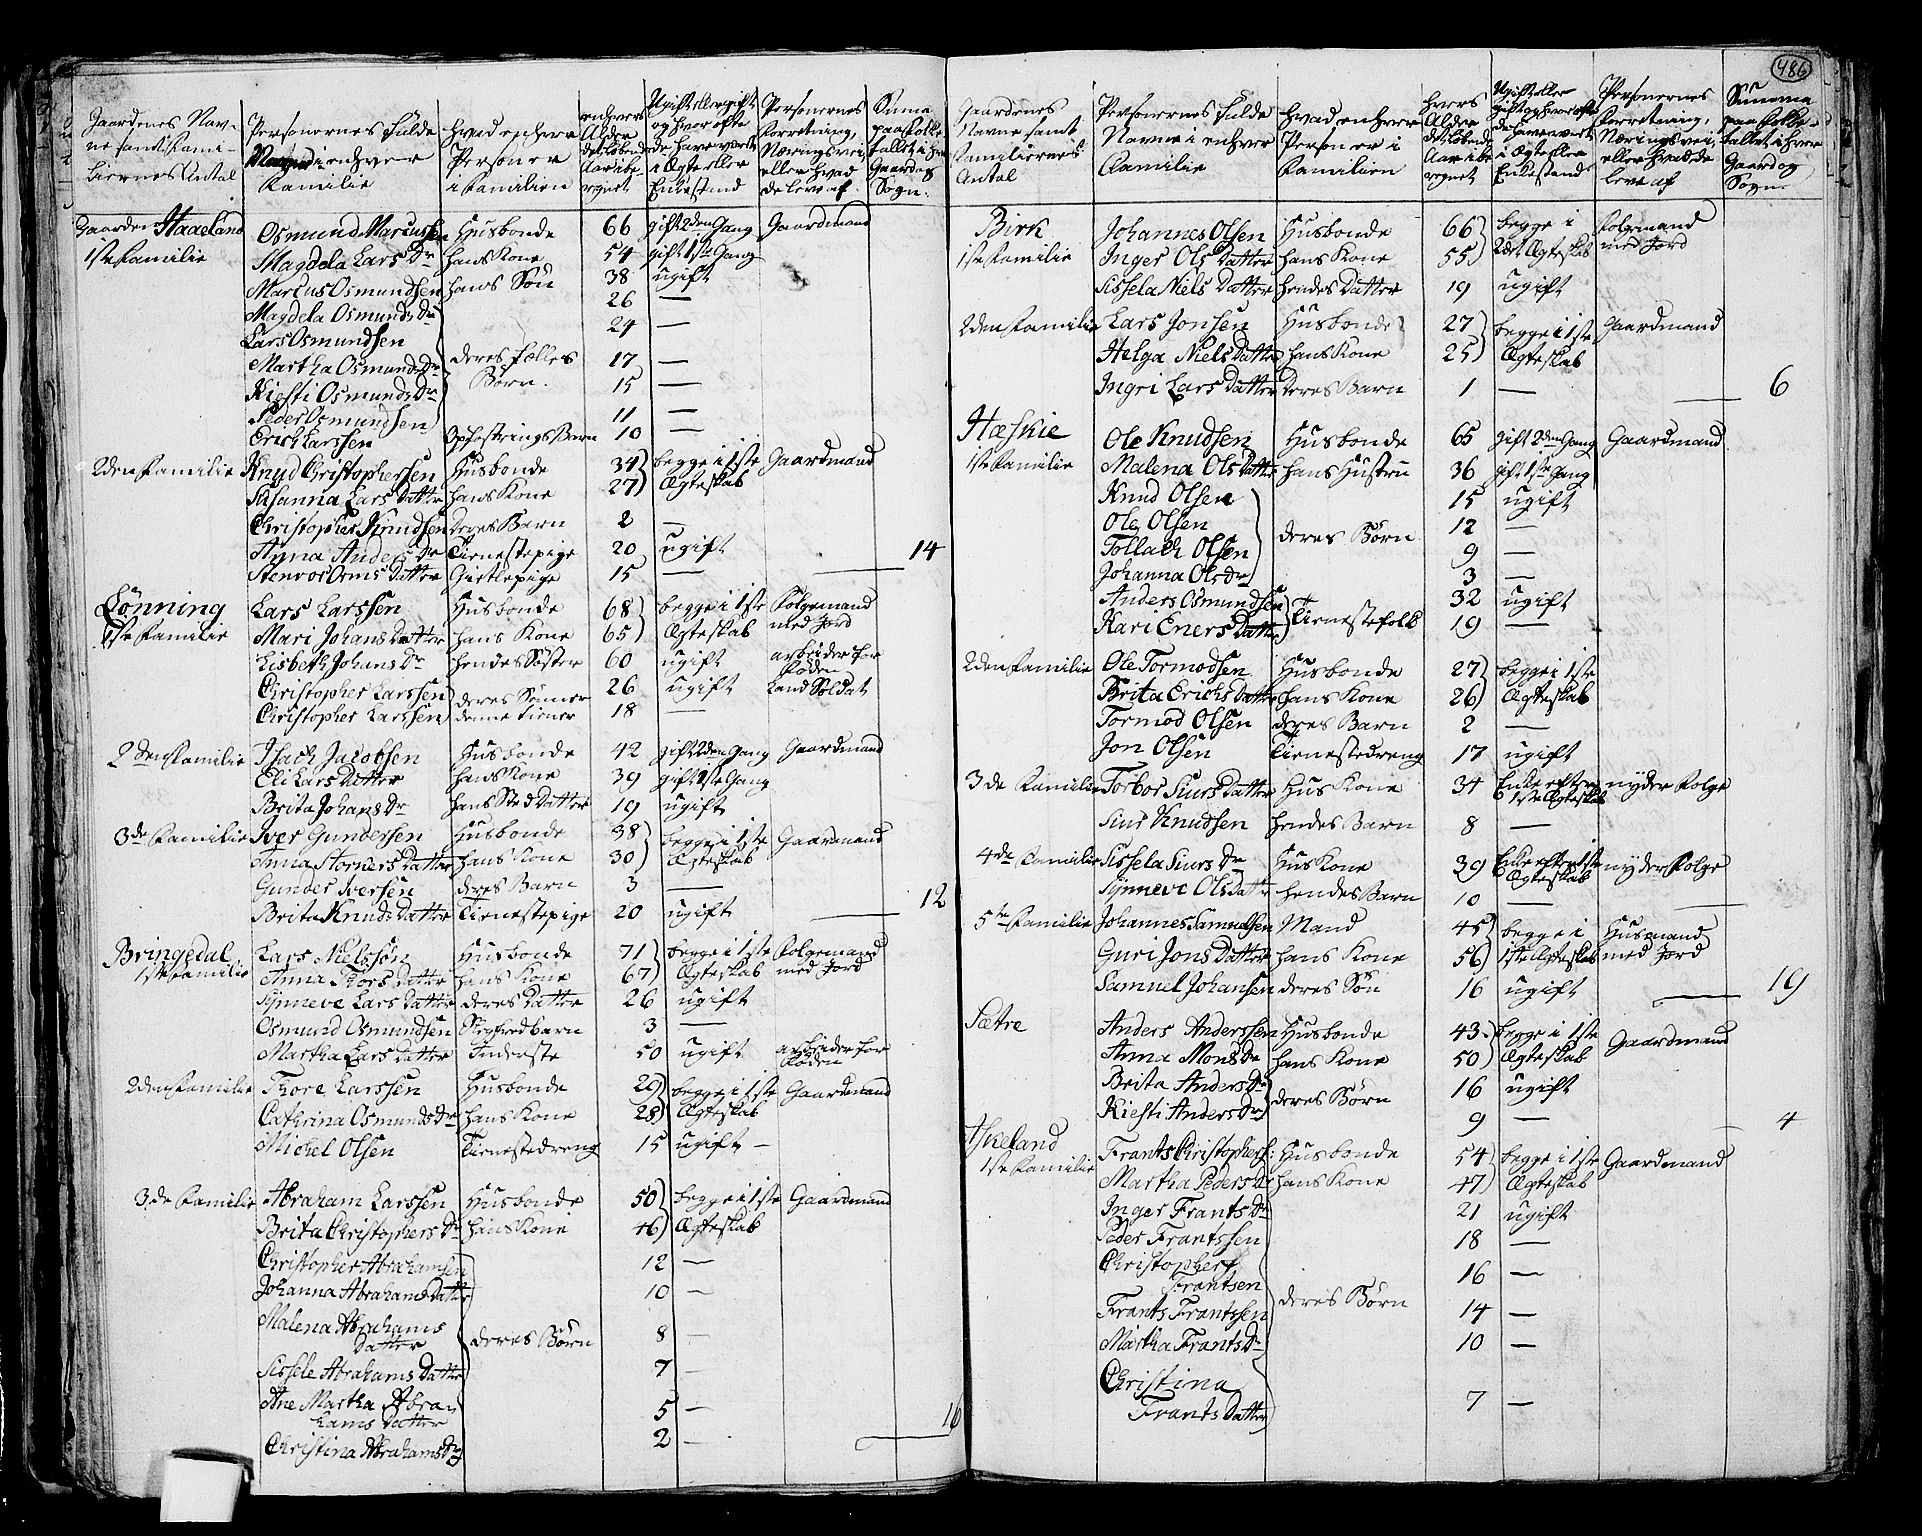 486
Gaardenes Nav-
ne samt Fami-
liernes Antal
Personernes fulde
Navne i enhver
Familie
Hvad enhver
Person er
i Familien
enhvers
Alder
det løbende
Aar ibe-
regnet
Ugift eller gift
og hvor ofte
de have været
i Ægte eller
Enkestand
Personernes
Forretning,
Næringsvei,
eller hvad
de leve af.
Suma
paa Folke
tallet i hver
Gaard og
Sogn.
Gaarden Haaeland Osmund Marcussen Husbonde 66 gift 2den Gang Gaardmand
1ste Familie Magdela Lars Dr hans Kone 54 gift 1ste Gang
Marcus Osmundsen hans Søn 38 ugift
Magdela Osmunds Dr 26 —
Lars Osmundsen 24 —
Martha Osmunds Dr deres fælles 17 —
Kiesti Osmunds Dr Børn. 15 —
Peder Osmundsen 11 —
Erich Larssen Opfostrings Barn 10 —
2den Familie Knud Christophersen Husbonde 34 begge i 1ste Gaardmand
Susanna Lars Datter hans Kone 27 Ægteskab
Christopher Knudsen Deres Barn 2 —
Anna Anders Dr Tienestepige 20 ugift
Stenvor Orms Datter Gietlepige 15 — 14
Lønning Lars Larssen Husbonde 68 begge i 1ste Folgemand
1ste Familie Mari Johans Datter hans Kone 65 Ægteskab med Jord
Lisbeth Johans Dr hendes Søster 60 ugift arbeider for Føden
Christopher Larssen deres Sønner 26 ugift Land Soldat
Christopher Larssen denne tiener 18 —
2den Familie Isach Jacobsen Husbonde 42 gift 2den Gang Gaardmand
Eli Lars Datter hans Kone 39 gift 1ste Gang
Brita Johans Dr hans Sted Datter 19 ugift
3de Familie Iver Gundersen Husbonde 38 begge i 1ste Gaardmand
Anna Storkers Datter hans Kone 30 Ægteskab
Gunder Iversen deres Barn 3 —
Brita Knuds Datter Tienestepige 20 ugift 12
Bringedal Lars Nielssøn Husbonde 71 begge i 1ste Folgemand
1ste Familie Anna Thors Datter hans Kone 67 Ægteskab med Jord
Synneve Lars Datter deres Datter 26 ugift
Osmund Osmundsen 3 —
Martha Lars Datter Inderste 50 ugift arbeider for Føden
2den Familie Thore Larssen Husbonde 29 begge i 1ste Gaardmand
Cathrina Osmunds Dr hans Kone 25 Ægteskab
Michel Olsen Tienestedreng 15 ugift —
3de Familie Abraham Larssen Husbonde 50 begge i 1ste Gaardmand
Brita Christophers Dr hans Kone 46 Ægteskab
Christopher Abrahamsen 12 —
Johanna Abrahams Datter 10 —
Malena Abrahams
Datter deres Børn 8 —
Sissele Abrahams Datter 7 —
Ane Martha Abra-
hams Datter 5 —
Christina Abrahams Dr 2 — 16
Gaardenes
Navne samt
Familiernes
Antal
Personernes fulde
Navne i enhver
Familie
Hvad enhver
Person er i
Familien
Hvers
Alder
det løbende
Aar ibe-
regnet
Ugift eller
gift og hvor ofte
de have vært
i Ægte eller
Enkestand
Personernes
Forretning,
Næringsvei,
eller hvad de
leve af
Summa
paa Folke-
tallet i hver
Gaard og
Sogn.
Birk Johannes Olsen Husbonde 66 begge i Folgemand
1ste Familie Inger Ols Datter hans Kone 55 2det Ægteskab med Jord
Sissela Niels Datter hendes Datter 19 ugift
2den Familie Lars Jonsen Husbonde 27 begge i 1ste Gaardmand
Helga Niels Datter hans Kone 25 Ægteskab
Ingri Lars Datter deres Barn 1 — 6
Hæskie Ole Knudsen Husbonde 65 gift 2den Gang Gaardmand
1ste Familie Malena Ols Datter hans Hustru 36 gift 1ste Gang
Knud Olsen 15 ugift
Ole Olsen deres Børn 12 —
Tollach Olsen 9 —
Johanna Ols Dr 3 —
Anders Osmundsen Tienestefolk 32 ugift
Kari Eners Datter 19 —
2den Familie Ole Tormodsen Husbonde 27 begge i 1ste
Brita Erichs Datter hans Kone 26 Ægteskab
Tormod Olsen deres Barn 2 —
Jon Olsen Tienestedreng 17 ugift
3de Familie Torbor Siurs Datter Hus Kone 34 Enke efter 1ste Ægteskab nyder Folge
Siur Knudsen hendes Barn 8 —
4de Familie Sissela Siurs Dr Hus Kone 39 Enke efter 1ste Ægteskab nyder Folge
Synneve Ols Datter hendes Barn 10 —
5te Familie Johannes Samuelsen Mand 45 begge i Husmand
Guri Jons Datter hans Kone 56 1ste Ægteskab med Jord
Samuel Johansen deres Søn 16 ugift 19
Sætre Anders Anderssen Husbonde 43 begge i 1ste Gaardmand
Anna Mons Dr hans Kone 50 Ægteskab
Brita Anders Dr deres Børn 16 ugift
Kiesti Anders Dr 9 — 4
Askeland Frants Christophers: Husbonde 54 begge i 1ste Gaardmand
1ste Familie Martha Peders Dr hans Kone 47 Ægteskab
Inger Frants Dr 21 ugift
Peder Frantssen 18 —
Christopher
Frantsen 16 —
Frants Frantssen deres Børn 14 —
Martha Frants Dr 10 —
Christina
Frants Datter 7 —